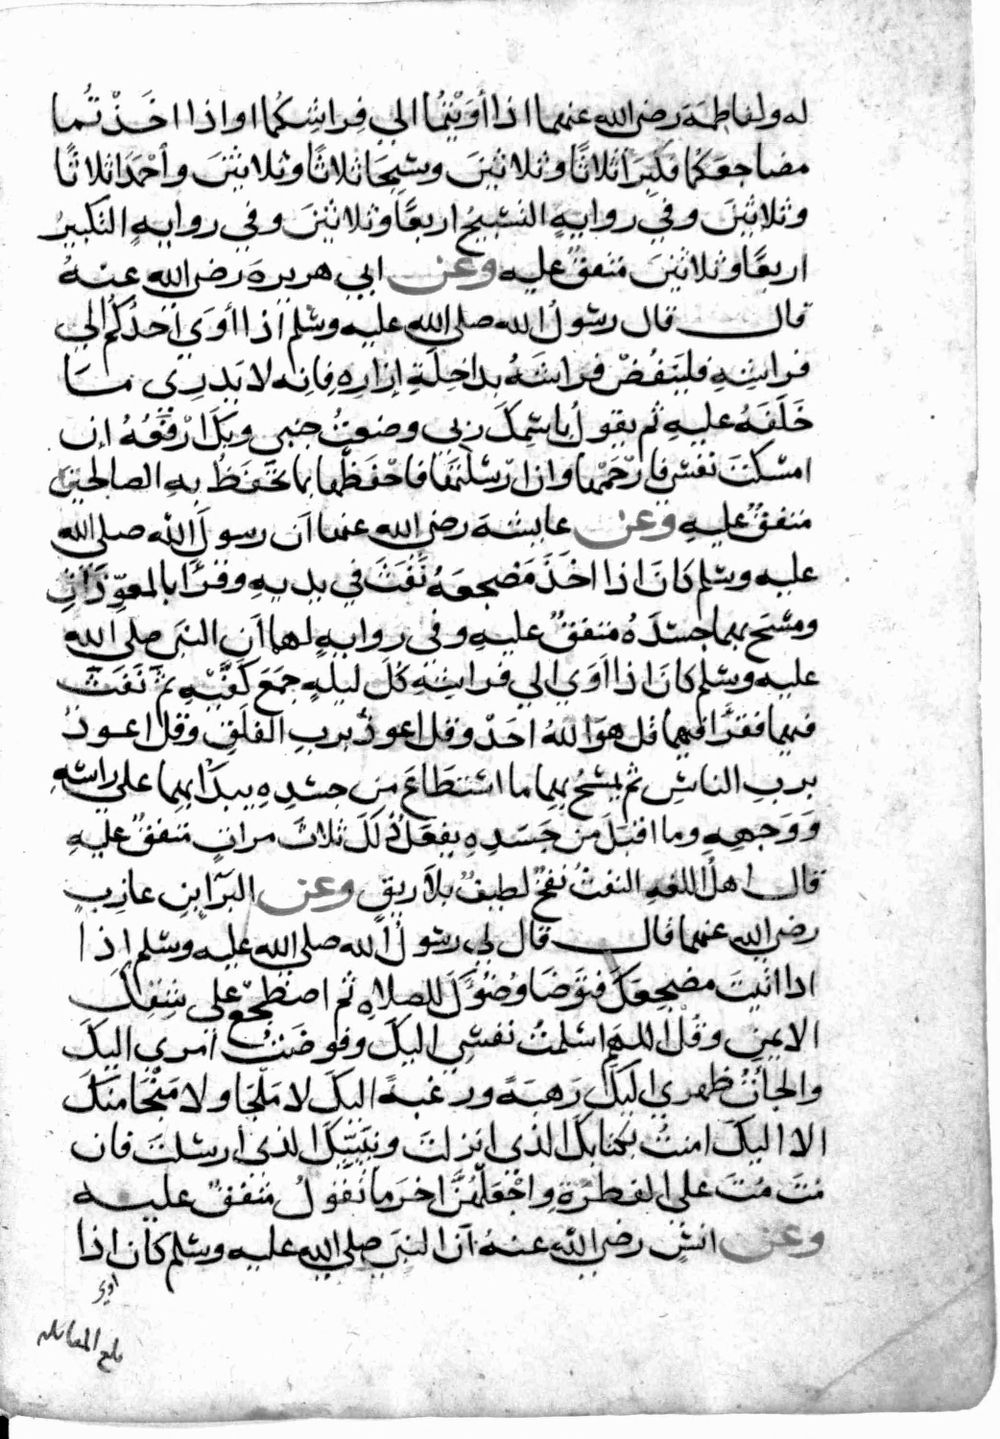 له ولفاطمة رضي الله عنهما اذا أوَيْتُما الي فِراشِكُما او اذا اخَذْتُما
مضاجعَكُما فكَبِّرَا ثلاثًا وثلاثينَ وسَبِّحَا ثلاثًا وثلاثينَ وأحْمَدَا ثلاثًا
وثلاثينَ وفي روايةٍ التسْبيحُ اربعًا وثلاثينَ وفي روايةٍ التكبيرُ
اربعًا وثلاثينَ متفقٌ عليه وعن ابي هريرةَ رضي الله عنهُ
قال قال رسُولُ الله صلي الله عليه وسلم اذا أوَي أحدُكُم الي
فراشِهِ فليَنفُضْ فراشَهُ بداخِلَةِ إزارِهِ فإنه لا يَدرِي ما
خَلَفَهُ عليهِ ثم يقولُ باسْمِكَ ربي وضعتُ جنبي وبكَ ارْفَعُهُ إن
امْسَكْتَ نفسي فارْحَمْها وان ارْسَلْتَها فاحْفَظْها بما تَحفَظُ بهِ الصالحين
متفقٌ عليهِ وعن عايشةَ رضي الله عنها أن رسولَ الله صلي الله
عليه وسلم كانَ اذا اخَذَ مَضجعَهُ نَفَثَ في يديهِ وقرَأ بالمعوِّذَاتِ
ومسَحَ بهما جسَدَهُ متفقٌ عليهِ وفي روايةٍ لهما أن النبي صلي الله
عليه وسلم كانَ اذا اَوَي الي فراشِهِ كُلَّ ليلةٍ جمَعَ كَفَّيْهِ ثم نَفَثَ
فيهما فقرَأ فيهما قل هوَ اللهُ احَدْ وقل اعوذُ بربِ الفلَقِ وقل اعوذُ
بربِ الناسِ ثم يمْسَحُ بهما ما اسْتطَاعَ من جسَدِهِ يبدَأ بهما علي راسِهِ
وَوَجهِهِ وما اقبَلَ من جَسَدِهِ يفعَلُ ذلكَ ثلاثَ مراتٍ متفقٌ عليهِ
قال اهلُ اللغةِ النفثُ نفخٌ لطيفٌ بلا ريقٍ وعن البرَآ ابنِ عازبٍ
رضي الله عنهما قال قال لي رسُولُ الله صلي الله عليه وسلم إذا
اذا اتيتَ مضجعَكَ فتوَضا وُضُوَكَ للصلاةِ ثم اضطجعْ علي شِقِكَ
الايمنِ وقُل اللهمَ اسْلمتُ نفسِي اليكَ وفوضتُ أمري اليكَ
والجأتُ ظهري اليكَ رَهبَةً ورغبةً اليكَ لا مَلْجَا ولا مَنْجَا منكَ
الا اليكَ امنتُ بكتابكَ الذي انزلتَ ونَبيِّكَ الذي ارسَلتَ فان
مُتَ مُتَ علي الفطرَةِ واجْعَلْهُنَّ اخرَ ما تقولُ متفقٌ عليه
وعن انسٍ رضي الله عنهُ أن النبيَ صلي الله عليه وسلم كان اذا
اوي
بلغ المقابله